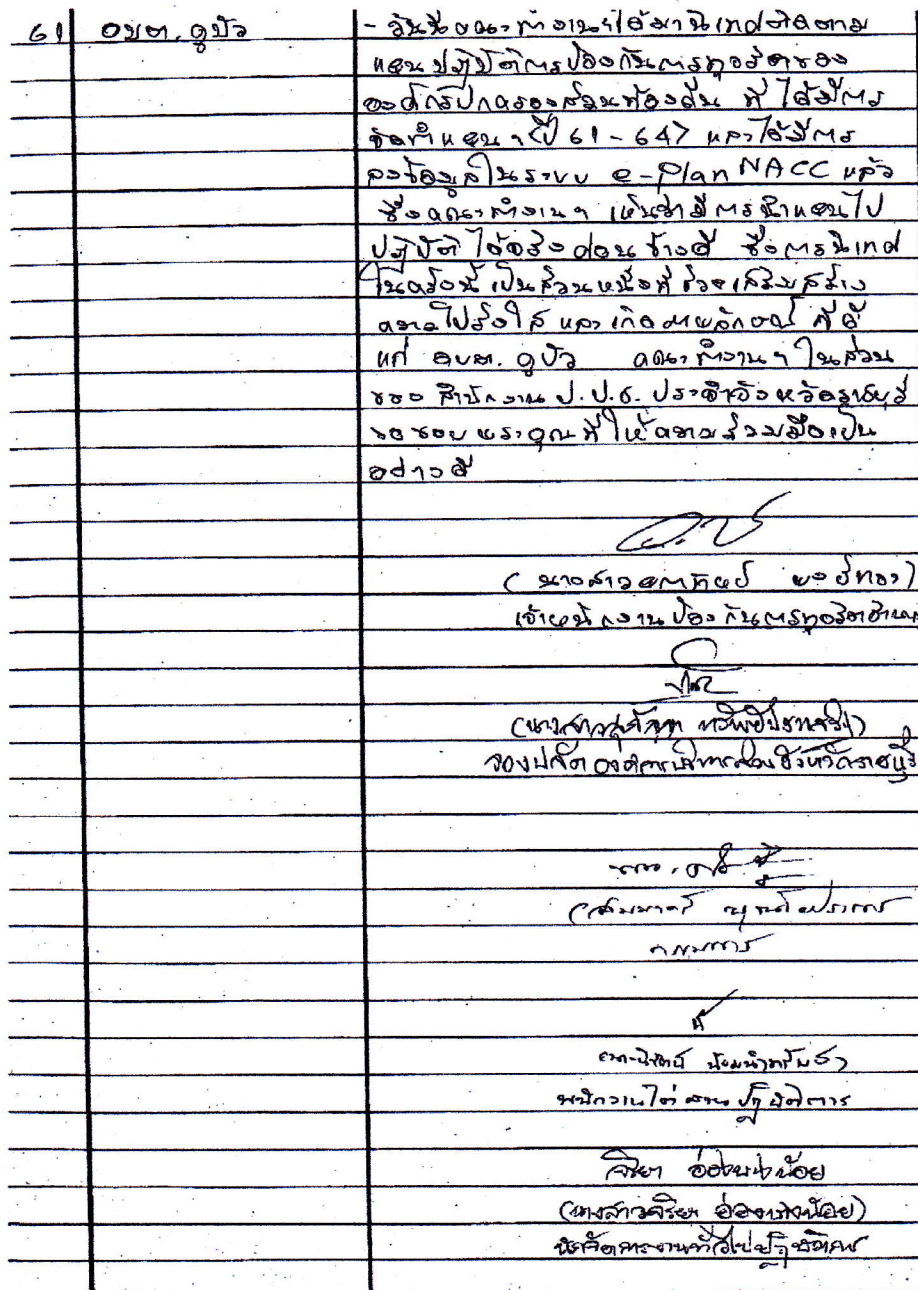 61 อบต. คูบัว - วันนี้คณะทำงานฯได้มานิเทศติดตาม
แผนปฏิบัติการป้องกันการทุจริตของ
องค์กรปกครองส่วนท้องถิ่น ที่ได้มีการ
จัดทำแผนฯ (ปี 61 - 64) และได้มีการ
ลงข้อมูลในระบบ e-Plan NACC แล้ว
ซึ่งคณะทำงานฯ เห็นว่ามีการนำแผนไป
ปฏิบัติได้จริงค่อนข้างดี ซึ่งการนิเทศ
ในครั้งนี้เป็นส่วนหนึ่งที่ช่วยเสริมสร้าง
ความโปร่งใส และเกิดภาพลักษณ์ ที่ดี
แก่ อบต. คูบัว คณะทำงานฯ ในส่วน
ของ สำนักงาน ป.ป.ช. ประจำจังหวัดราชบุรี
ขอขอบพระคุณที่ให้ความร่วมมือเป็น
อย่างดี
(นางสาว
เจ้าพนักงานป้องกันการทุจริตชำนาญ
(นางสาว
รองปลัดองค์การบริหารส่วนจังหวัดราชบุรี
กรรมการ
พนักงานไต่สวนปฏิบัติการ
จริยา น้อย
(นางสาวจริยา น้อย)
นักจัดการงานทั่วไปปฏิบัติการ